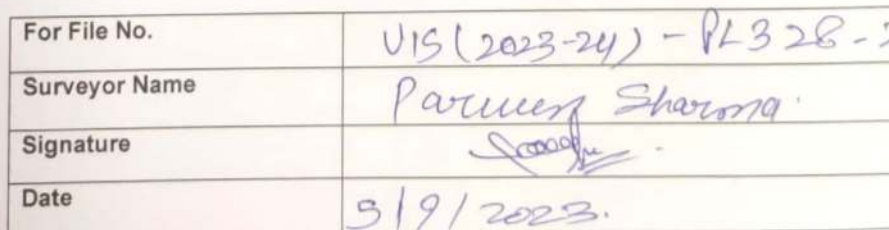 For File No. VIS (2023-24) - PL328-
Surveyor Name Parveen Sharma.
Signature
Date 5/9/2023.